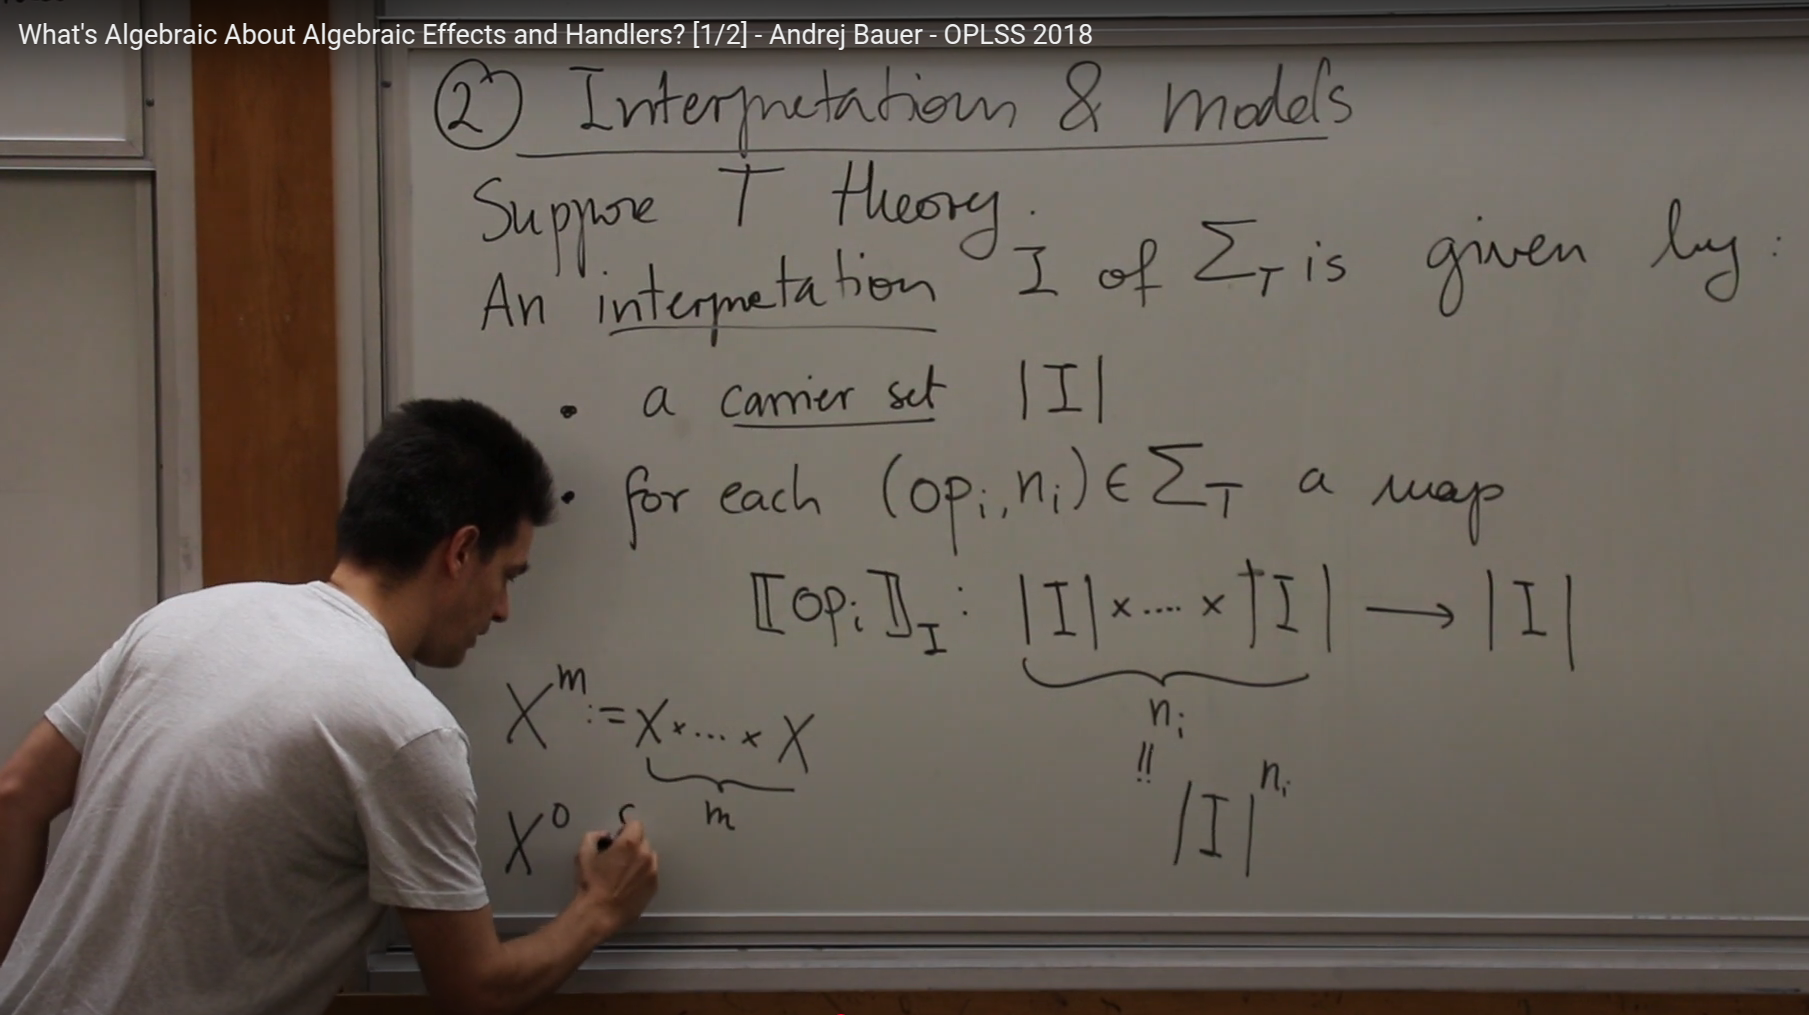 What's Algebraic About Algebraic Effects and Handlers? [1/2] - Andrej Bauer - OPLSS 2018
② Interpretations & models
Suppose T theory.
An interpretation I of Σ_T is given by:
• a carrier set |I|
• for each (op_i, n_i) ∈ Σ_T a map
⟦op_i⟧_I : |I| × .... × |I| ⟶ |I|
n_i
X^m := X × ... × X
m
||
|I|^{n_i}
X^0